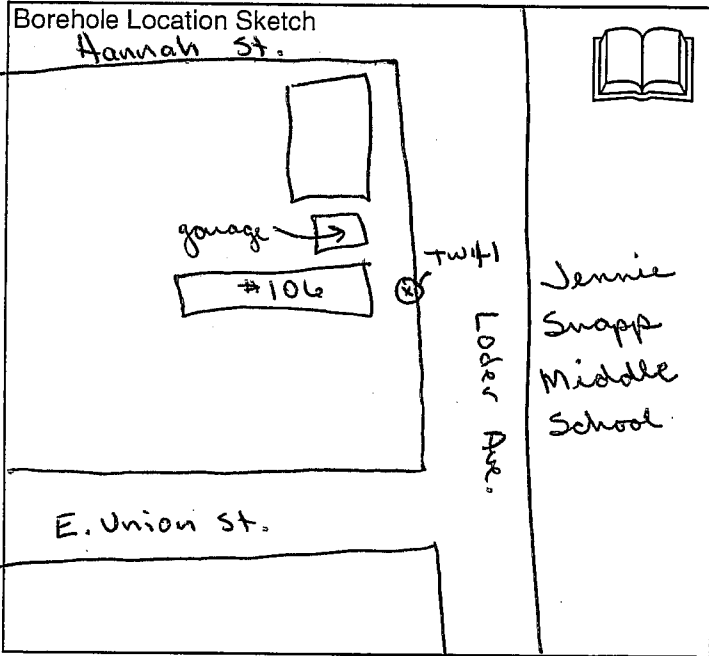 Borehole Location Sketch
Hannah St.
garage
#106
TW41
Loder Ave.
Jennie
Snapp
Middle
School
E. Union St.